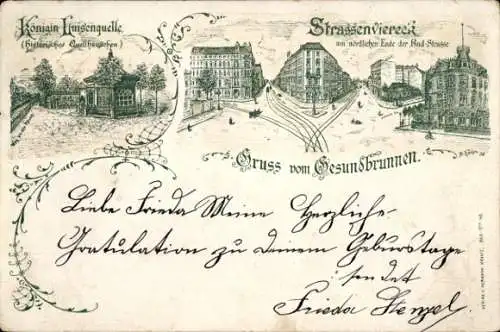 Königin Luisenquelle
(Historisches Quellhäuschen)
Strassenviereck
am nördlichen Ende der Bad-Strasse
Gruss vom Gesundbrunnen.
Liebe Frieda Meine Herzliche-
Gratulation zu deinem Geburtstage
sendet
Frieda Stenzel